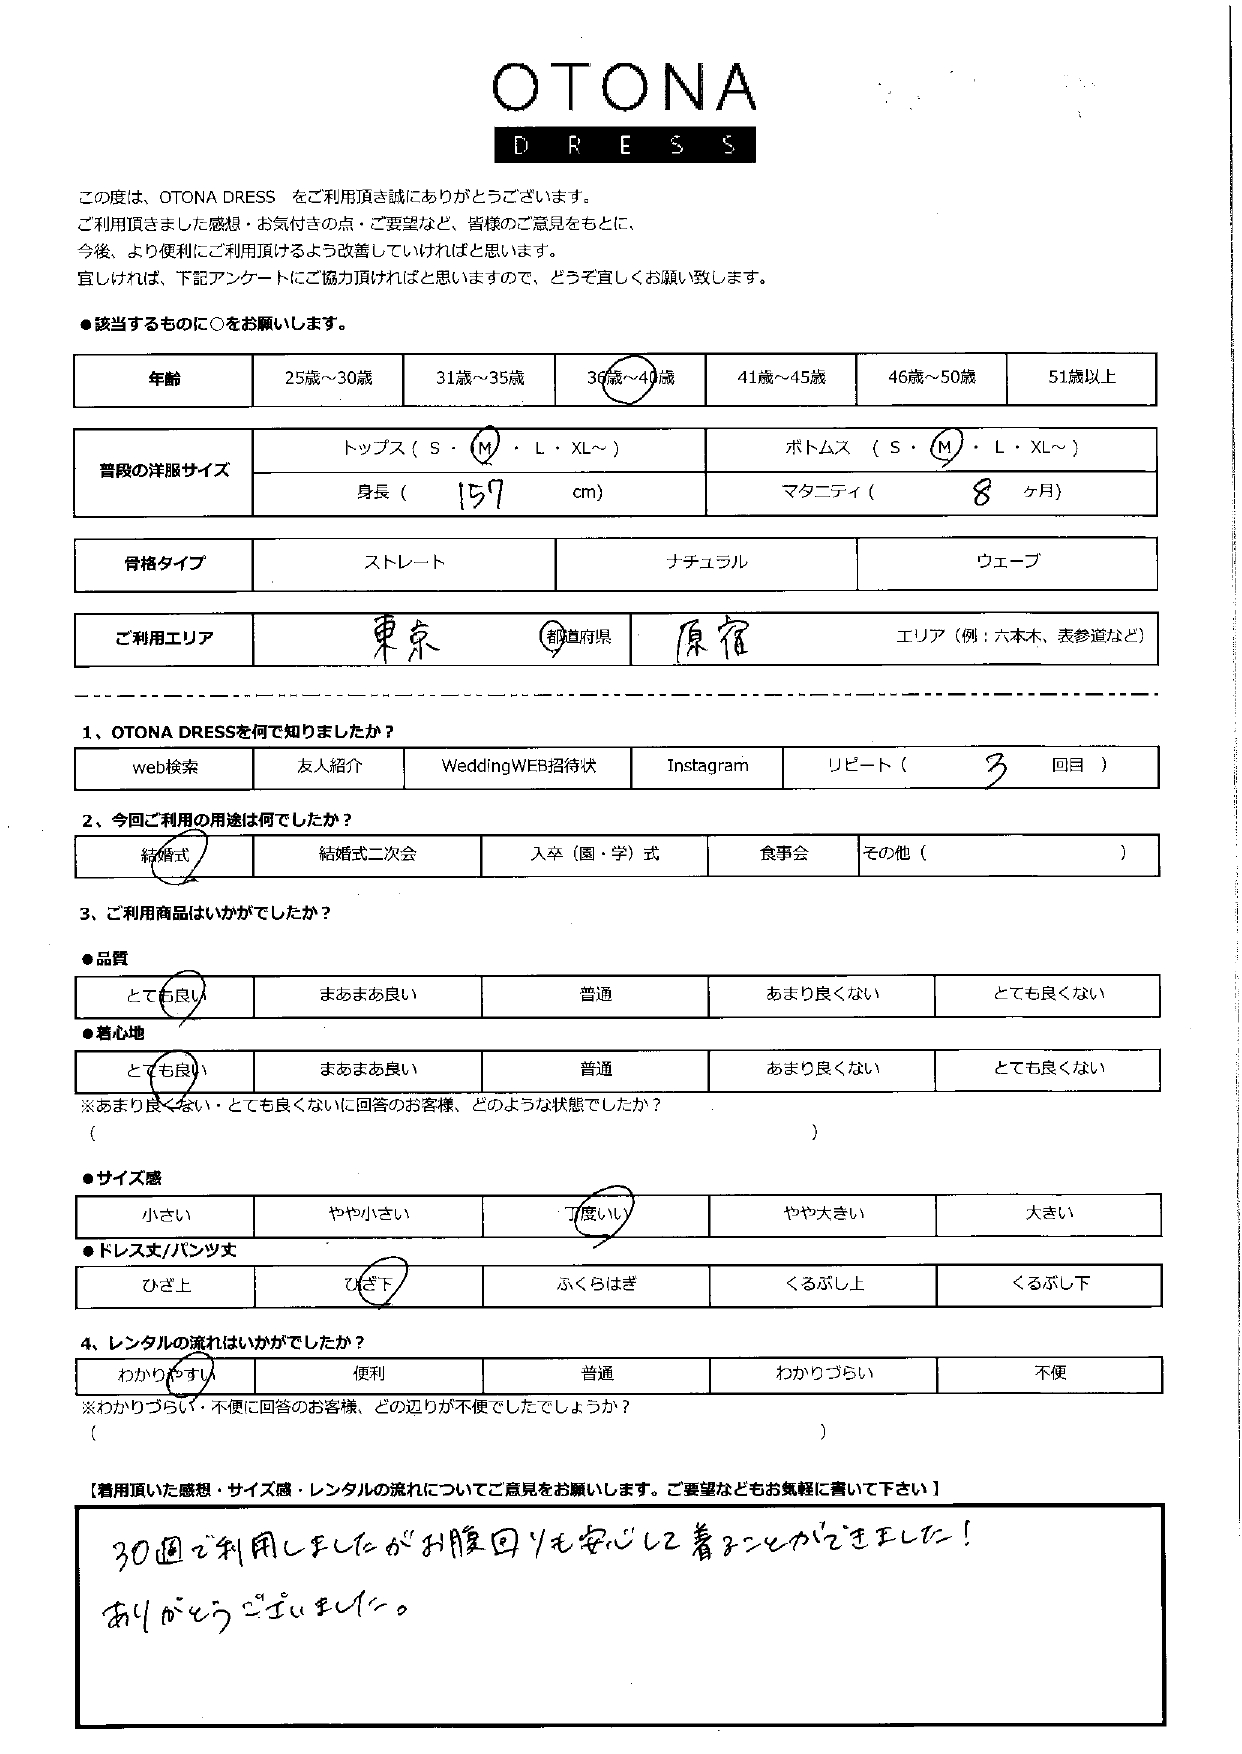 OTONA
DRESS
この度は、OTONA DRESS をご利用頂き誠にありがとうございます。
ご利用頂きました感想・お気付きの点・ご要望など、皆様のご意見をもとに、
今後、より便利にご利用頂けるよう改善していければと思います。
宜しければ、下記アンケートにご協力頂ければと思いますので、どうぞ宜しくお願い致します。
●該当するものに○をお願いします。
年齢 25歳～30歳 31歳～35歳 36歳～40歳 41歳～45歳 46歳～50歳 51歳以上
普段の洋服サイズ トップス ( S ・ M ・ L ・ XL～ ) ボトムス ( S ・ M ・ L ・ XL～ )
身長 ( 157 cm) マタニティ ( 8 ヶ月)
骨格タイプ ストレート ナチュラル ウェーブ
ご利用エリア 東京 都道府県 原宿 エリア（例：六本木、表参道など）
1、OTONA DRESSを何で知りましたか？
web検索 友人紹介 WeddingWEB招待状 Instagram リピート ( 3 回目 )
2、今回ご利用の用途は何でしたか？
結婚式 結婚式二次会 入卒（園・学）式 食事会 その他 ( )
3、ご利用商品はいかがでしたか？
●品質
とても良い まあまあ良い 普通 あまり良くない とても良くない
●着心地
とても良い まあまあ良い 普通 あまり良くない とても良くない
※あまり良くない・とても良くないに回答のお客様、どのような状態でしたか？
( )
●サイズ感
小さい やや小さい 丁度いい やや大きい 大きい
●ドレス丈/パンツ丈
ひざ上 ひざ下 ふくらはぎ くるぶし上 くるぶし下
4、レンタルの流れはいかがでしたか？
わかりやすい 便利 普通 わかりづらい 不便
※わかりづらい・不便に回答のお客様、どの辺りが不便でしたでしょうか？
( )
【着用頂いた感想・サイズ感・レンタルの流れについてご意見をお願いします。ご要望などもお気軽に書いて下さい】
30週で利用しましたがお腹回りも安心して着ることができました！
ありがとうございました。